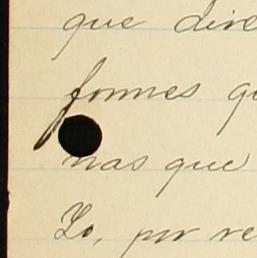 que dive
formes qu
nas que
Lo, por re